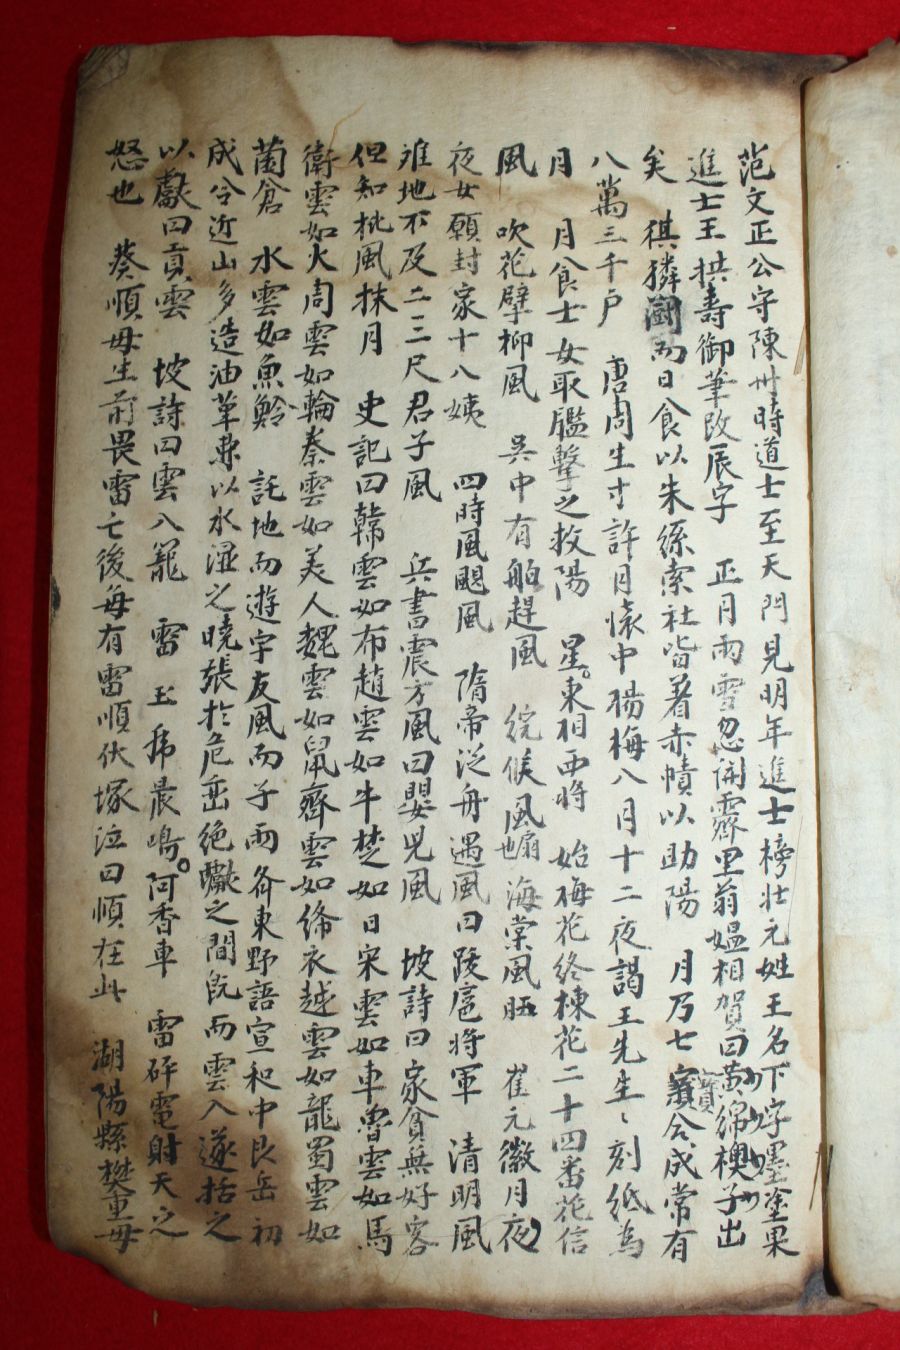 范文正公守陳州時道士至天門見明年進士榜壯元姓王名下字墨塗果
進士王拱壽御筆改辰字 正月雨雪忽開霽里翁媼相賀曰黃綿襖子出
矣 祺獜鬪而日食以朱絲索社皆着赤幘以助陽 月乃七寶合成常有
八萬三千戶 唐周生寸許月懷中楊梅八月十二夜謁王先生〻刻紙爲
月 月食士女取鑑擊之救陽 星東相西將 始梅花終棟花二十四番花信
風 吹花擘柳風 吳中有舶趕風 綄候風扇也 海棠風 崔元徽月夜
夜女願封家十八姨 四時風颶風 隋帝泛舟遇風曰跋扈將軍 清明風
难地不及二三尺君子風 兵書震方風曰嬰兒風 坡詩曰家貧無好客
但知批風抹月 史記曰韓雲如布趙雲如牛楚如日宋雲如車魯雲如馬
衛雲如犬周雲如輪秦雲如美人魏雲如鼠齊雲如絳衣越雲如龍蜀雲如
菌倉 水雲如魚鱗 託地而遊宇友風而子雨 齊東野語宣和中艮岳初
成令近山多造油單囊以水湿之曉張於危峦絶巘之間旣而雲入遂括之
以獻曰貢雲 坡詩曰雲入籠 雷 玉虎晨鳴 阿香車 雷砰電射天之
怒也 蔡順母生前畏雷亡後每有雷順伏塚泣曰順在此 湖陽縣樊重母